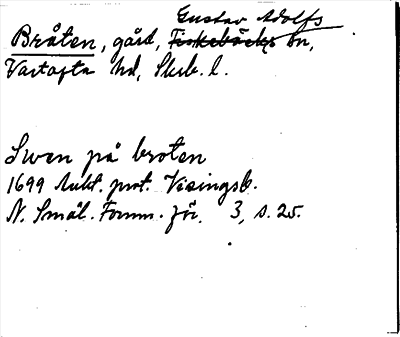 Gustav Adolfs
Bråten, gård, Fiskebäcks sn,
Vartofta hd, Skrb. l.
Swen på broten
1699 Aukt. prot. Visingsb.
N. Smål. Fornm. för. 3, s. 25.